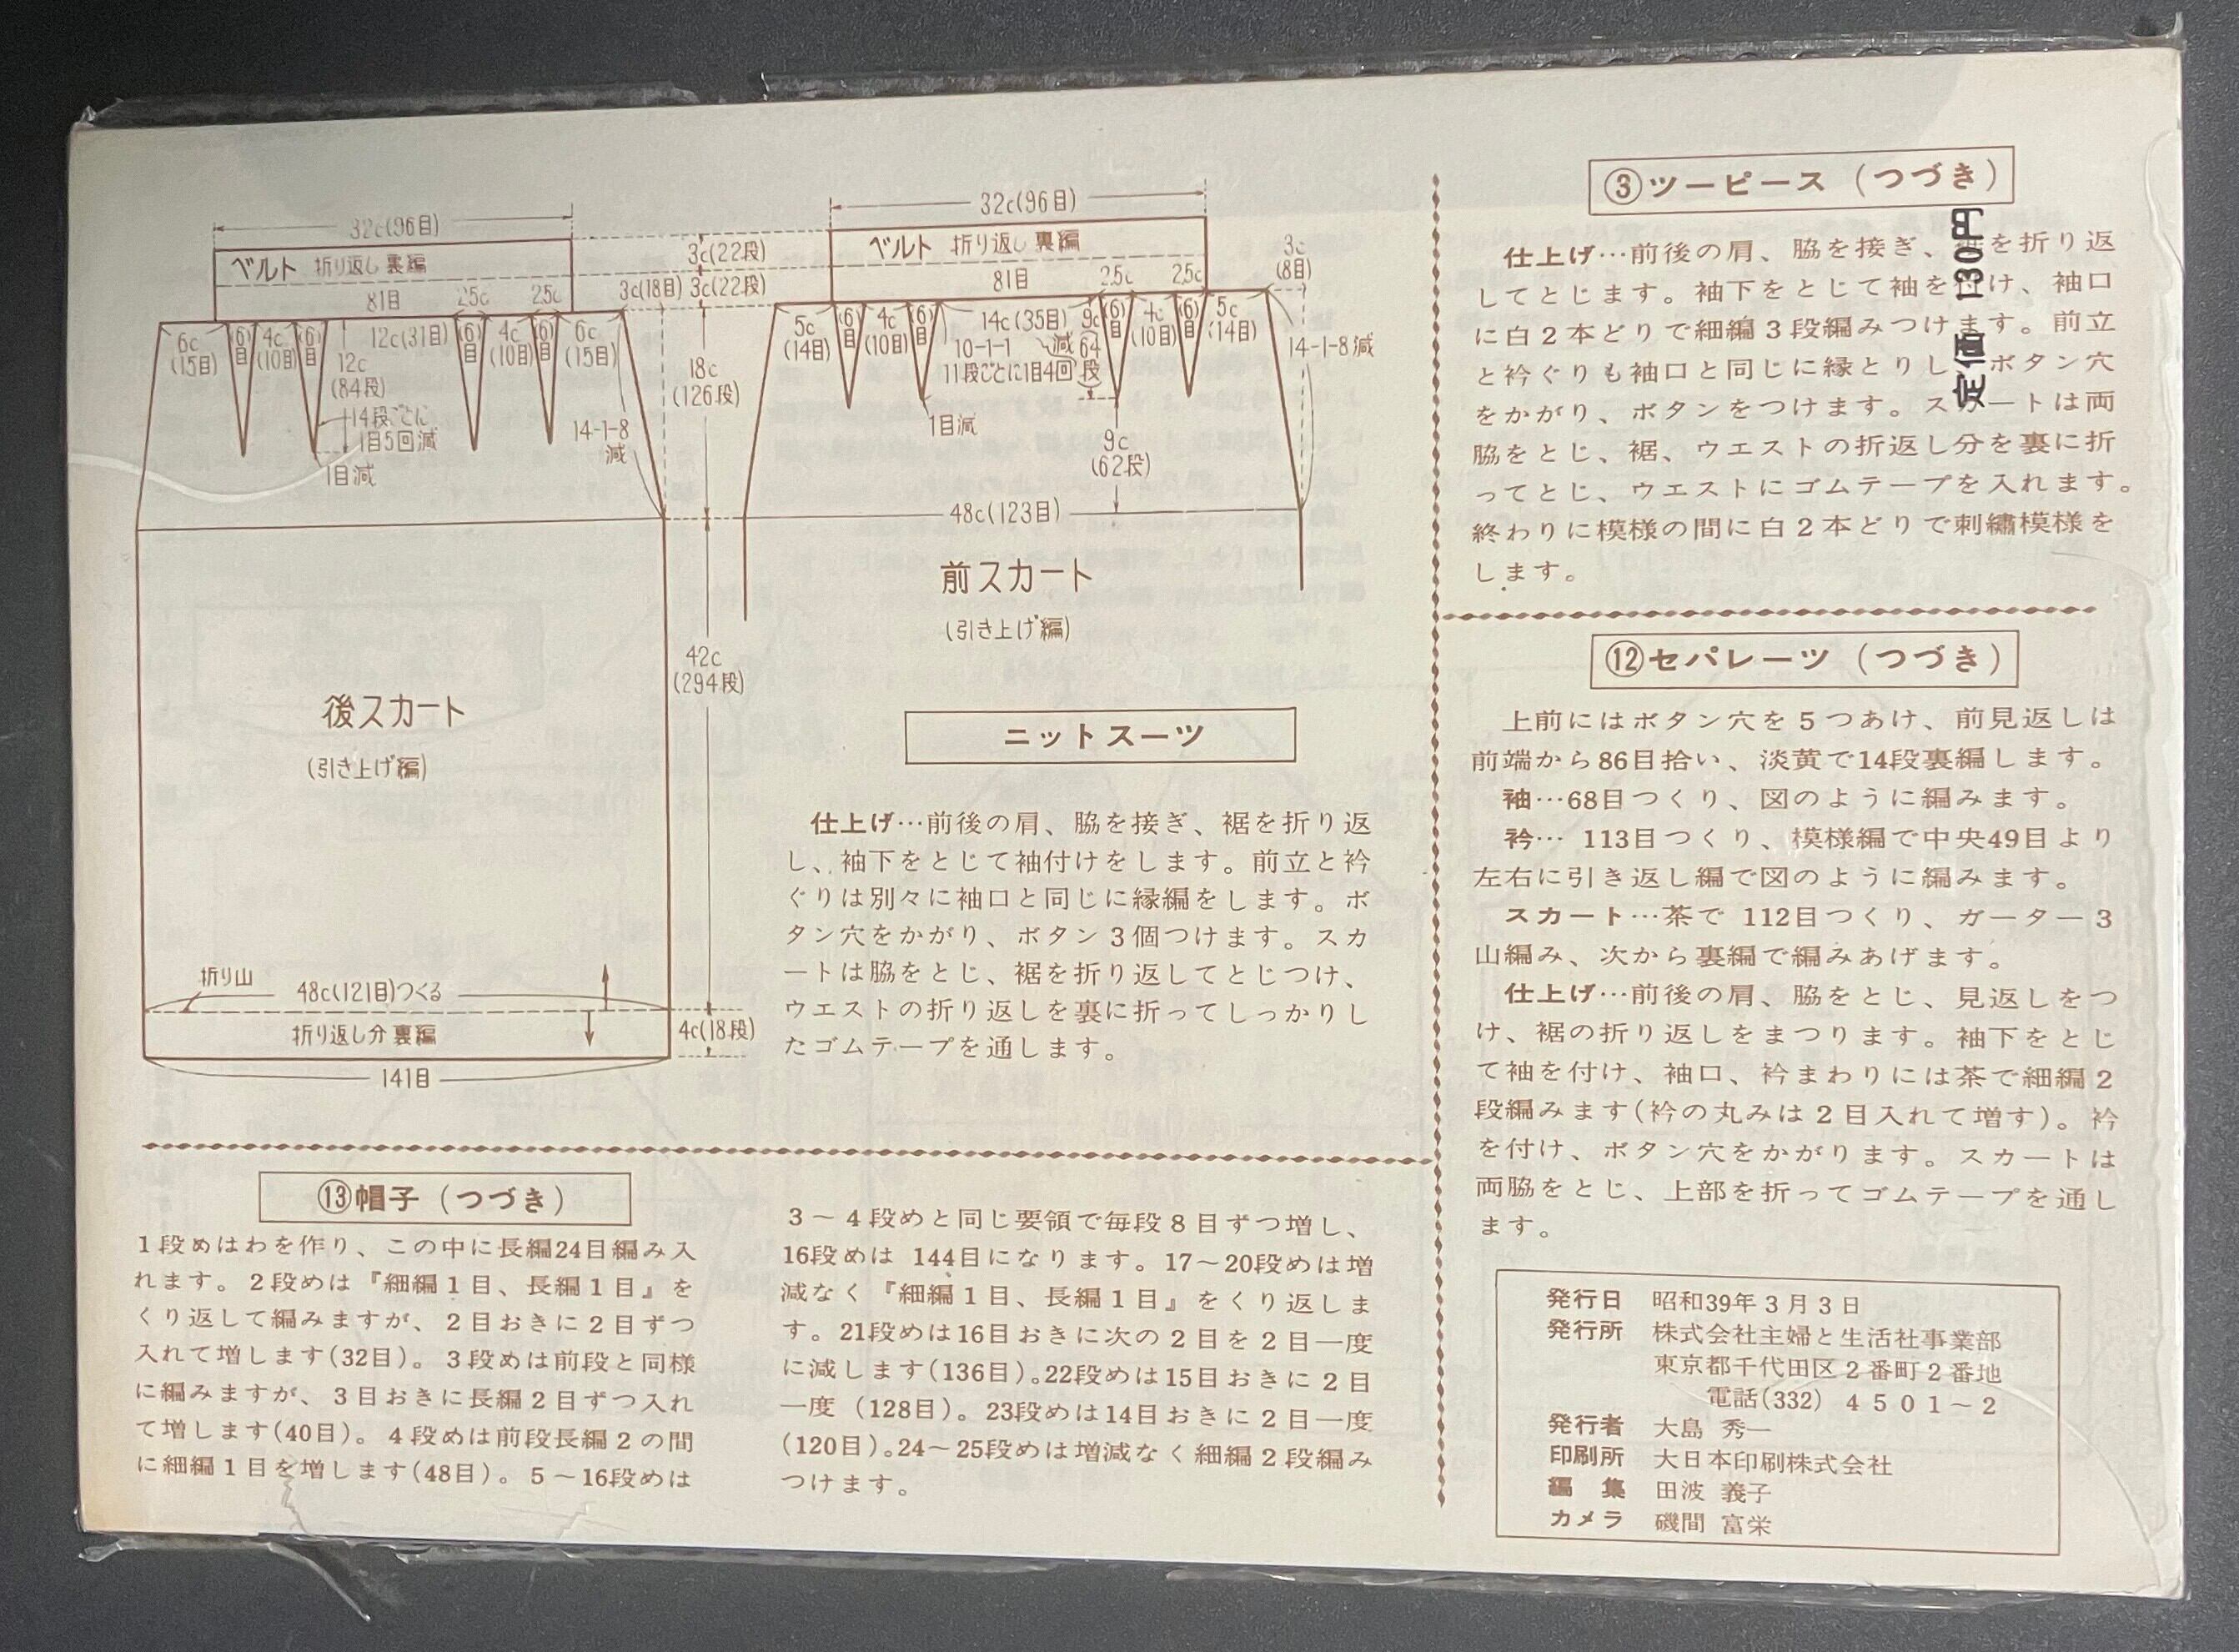 32c(96目)
ベルト 折り返し 裏編
81目
2.5c
2.5c
3c(18目)
3c(22段)
3c(22段)
6c
(15目)
(6)目
4c
(10目)
(6)目
12c(31目)
(6)目
4c
(10目)
(6)目
6c
(15目)
12c
(84段)
14段ごとに
1目5回減
1目減
14-1-8
減
18c
(126段)
42c
(294段)
後スカート
(引き上げ編)
折り山
48c(121目)つくる
折り返し分 裏編
4c(18段)
141目
32c(96目)
ベルト 折り返し 裏編
81目
2.5c
2.5c
3c
(8目)
5c
(14目)
(6)目
4c
(10目)
(6)目
14c(35目)
10-1-1
減
11段ごとに1目4回
9c
64
段
(6)目
4c
(10目)
(6)目
5c
(14目)
14-1-8減
1目減
9c
(62段)
48c(123目)
前スカート
(引き上げ編)
ニットスーツ
仕上げ…前後の肩、脇を接ぎ、裾を折り返
し、袖下をとじて袖付けをします。前立と衿
ぐりは別々に袖口と同じに縁編をします。ボ
タン穴をかがり、ボタン3個つけます。スカ
ートは脇をとじ、裾を折り返してとじつけ、
ウエストの折り返しを裏に折ってしっかりし
たゴムテープを通します。
⑬帽子(つづき)
1段めはわを作り、この中に長編24目編み入
れます。2段めは『細編1目、長編1目』を
くり返して編みますが、2目おきに2目ずつ
入れて増します(32目)。3段めは前段と同様
に編みますが、3目おきに長編2目ずつ入れ
て増します(40目)。4段めは前段長編2の間
に細編1目を増します(48目)。5〜16段めは
3〜4段めと同じ要領で毎段8目ずつ増し、
16段めは 144目になります。17〜20段めは増
減なく『細編1目、長編1目』をくり返しま
す。21段めは16目おきに次の2目を2目一度
に減します(136目)。22段めは15目おきに2目
一度(128目)。23段めは14目おきに2目一度
(120目)。24〜25段めは増減なく細編2段編み
つけます。
③ツーピース(つづき)
仕上げ…前後の肩、脇を接ぎ、を折り返
してとじます。袖下をとじて袖をけ、袖口
に白2本どりで細編3段編みつけます。前立
と衿ぐりも袖口と同じに縁とりし ボタン穴
をかがり、ボタンをつけます。スカートは両
脇をとじ、裾、ウエストの折返し分を裏に折
ってとじ、ウエストにゴムテープを入れます。
終わりに模様の間に白2本どりで刺繡模様を
します。
定価 130円
⑫セパレーツ(つづき)
上前にはボタン穴を5つあけ、前見返しは
前端から86目拾い、淡黄で14段裏編します。
袖…68目つくり、図のように編みます。
衿… 113目つくり、模様編で中央49目より
左右に引き返し編で図のように編みます。
スカート…茶で 112目つくり、ガーター3
山編み、次から裏編で編みあげます。
仕上げ…前後の肩、脇をとじ、見返しをつ
け、裾の折り返しをまつります。袖下をとじ
て袖を付け、袖口、衿まわりには茶で細編2
段編みます(衿の丸みは2目入れて増す)。衿
を付け、ボタン穴をかがります。スカートは
両脇をとじ、上部を折ってゴムテープを通し
ます。
発行日 昭和39年3月3日
発行所 株式会社主婦と生活社事業部
東京都千代田区2番町2番地
電話(332) 4501〜2
発行者 大島 秀一
印刷所 大日本印刷株式会社
編 集 田波 義子
カメラ 磯間 富栄